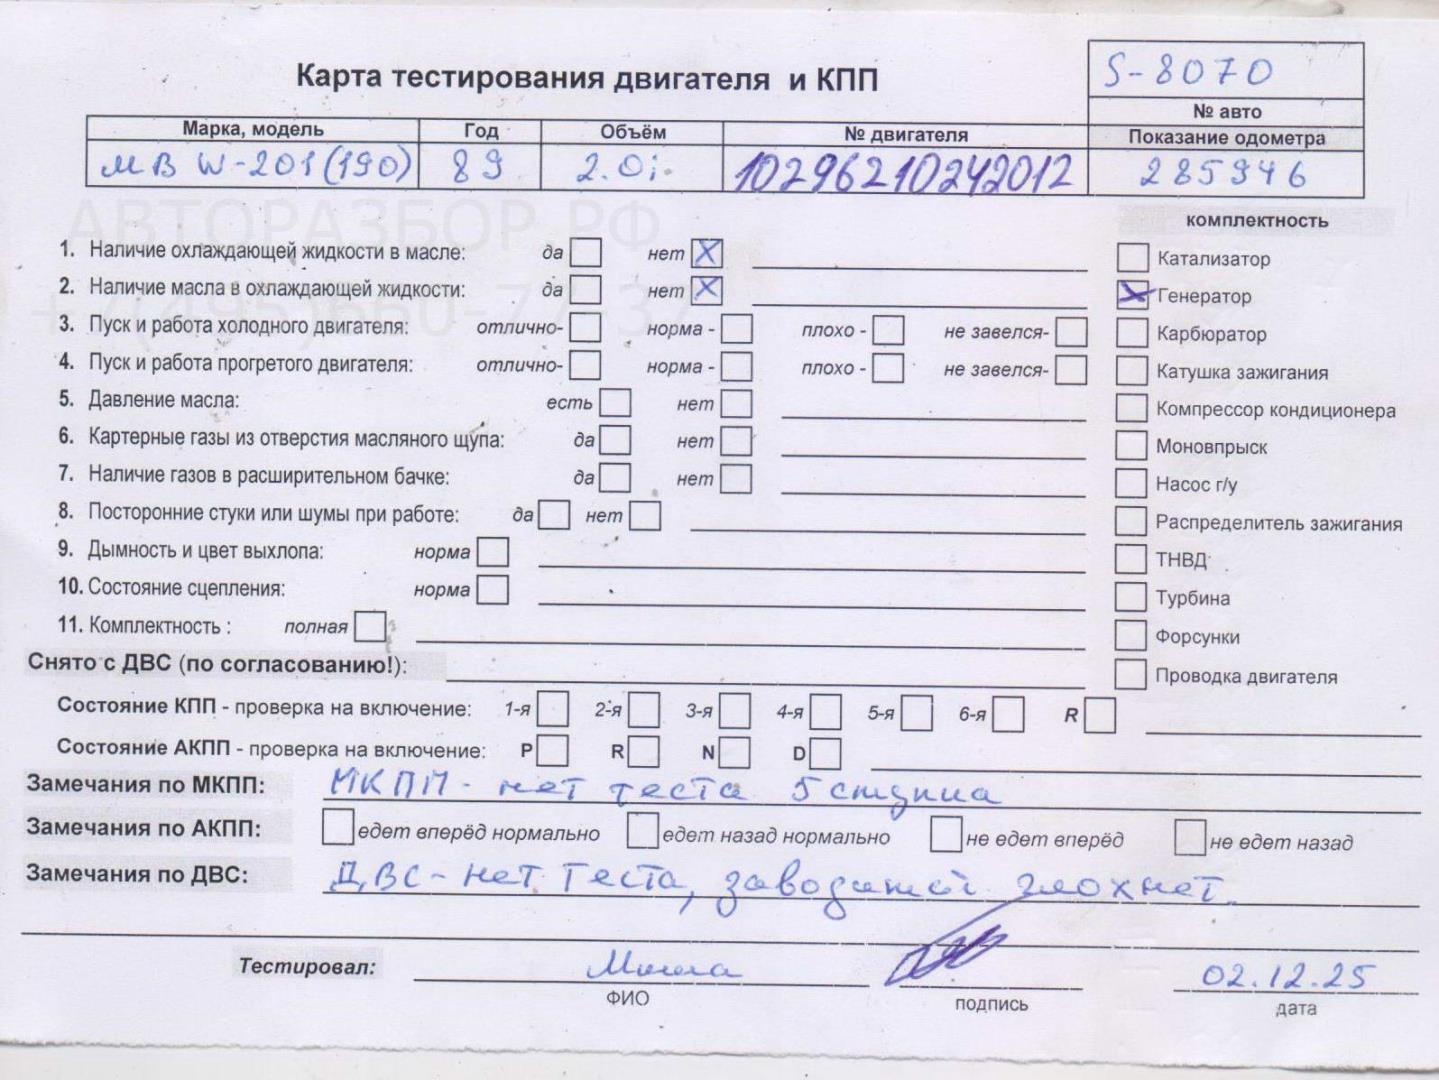 S-8070
Карта тестирования двигателя и КПП
№ авто
Марка, модель Год Объём № двигателя Показание одометра
МВ W-201(190) 89 2.0i 10296210242012 285946
АВТОРАЗБОР.РФ
комплектность
1. Наличие охлаждающей жидкости в масле: да нет X
Катализатор
2. Наличие масла в охлаждающей жидкости: да нет X
X Генератор
+7(495)660-77-37
3. Пуск и работа холодного двигателя: отлично- норма - плохо - не завелся-
Карбюратор
4. Пуск и работа прогретого двигателя: отлично- норма - плохо - не завелся-
Катушка зажигания
5. Давление масла: есть нет
Компрессор кондиционера
6. Картерные газы из отверстия масляного щупа: да нет
Моновпрыск
7. Наличие газов в расширительном бачке: да нет
Насос г/у
8. Посторонние стуки или шумы при работе: да нет
Распределитель зажигания
9. Дымность и цвет выхлопа: норма
ТНВД
10. Состояние сцепления: норма
Турбина
11. Комплектность : полная
Форсунки
Снято с ДВС (по согласованию!):
Проводка двигателя
Состояние КПП - проверка на включение: 1-я 2-я 3-я 4-я 5-я 6-я R
Состояние АКПП - проверка на включение: P R N D
Замечания по МКПП: МКПП - нет теста 5 ступка
Замечания по АКПП: едет вперёд нормально едет назад нормально не едет вперёд не едет назад
Замечания по ДВС: ДВС - нет теста, заводится глохнет.
Тестировал: Миша 02.12.25
ФИО подпись дата